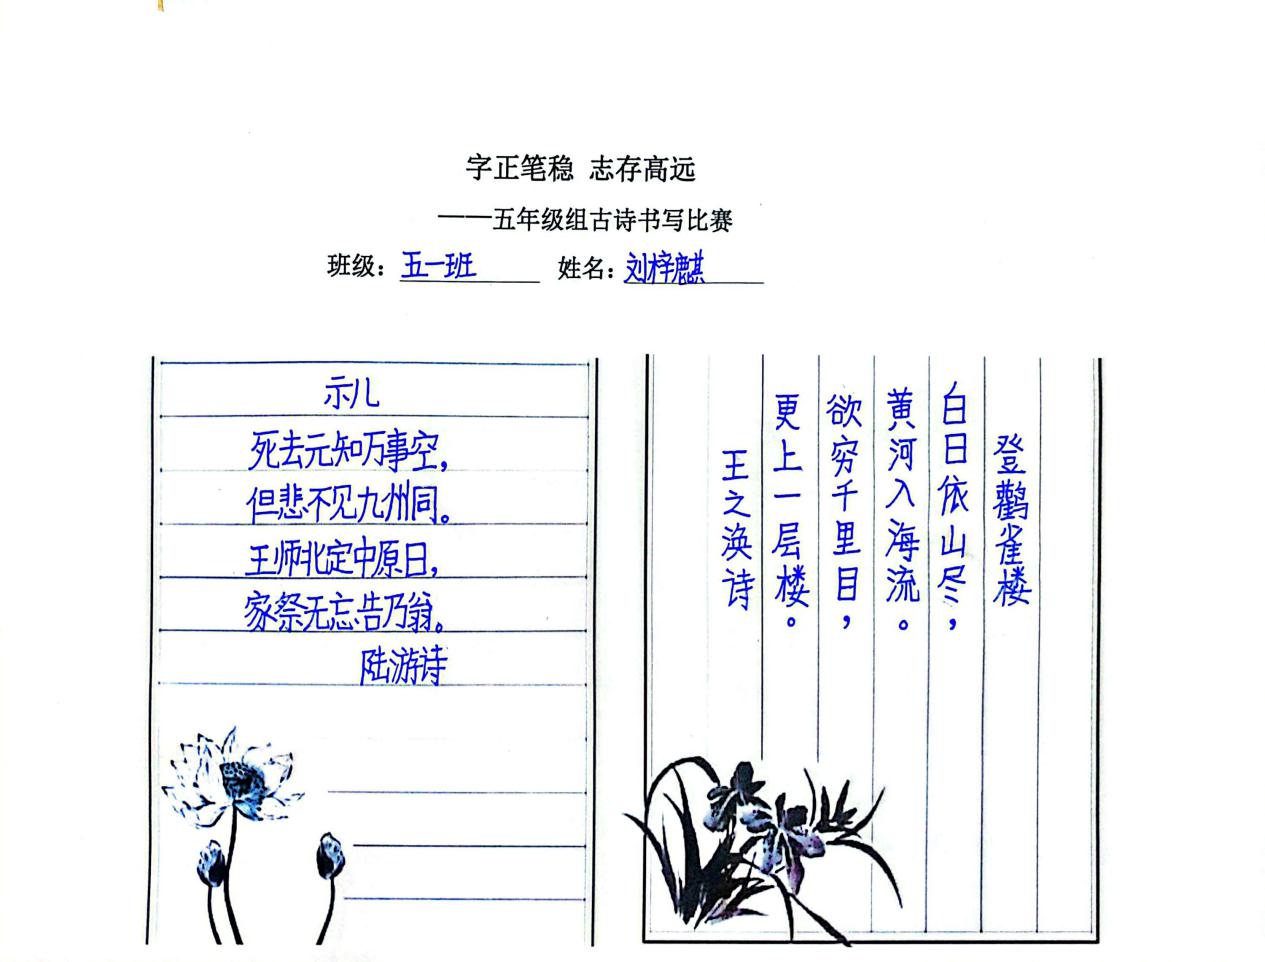 字正笔稳 志存高远
——五年级组古诗书写比赛
班级：五一班 姓名：刘梓麒
示儿
死去元知万事空，
但悲不见九州同。
王师北定中原日，
家祭无忘告乃翁。
陆游诗
登鹳雀楼
白日依山尽，
黄河入海流。
欲穷千里目，
更上一层楼。
王之涣诗